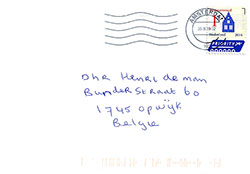 AMSTERDAM
PRIORITY
Dhr Henri de man
Bunderstraat 60
1745 Opwijk
Belgie